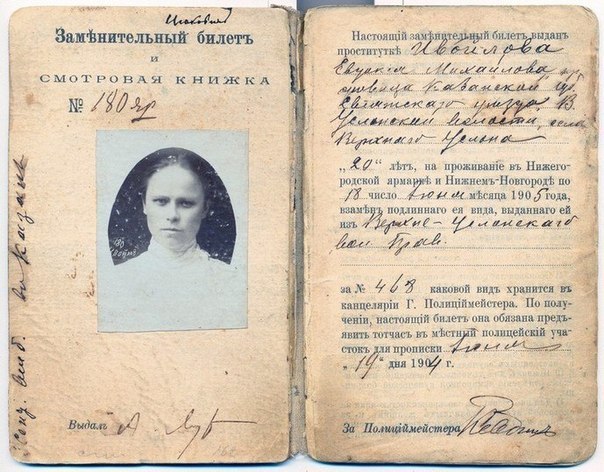 Замѣнительный билетъ
и
СМОТРОВАЯ КНИЖКА
№ 180 яр
Выдалъ
Настоящій замѣнительный билетъ выданъ
проституткѣ Ивойлова
Евдокія Михайлова
Казанской губ.
Свіяжскаго уѣзда, В.
Услонской волости, села
Верхняго Услона
„20“ лѣтъ, на проживаніе въ Нижего-
родской ярмаркѣ и Нижнемъ-Новгородѣ по
18 число Іюня мѣсяца 1905 года,
взамѣнъ подлиннаго ея вида, выданнаго ей
изъ Верхне-Услонскаго
вол. Прав.
за № 468 каковой видъ хранится въ
канцеляріи Г. Полиціймейстера. По полу-
ченіи, настоящій билетъ она обязана предъ-
явить тотчасъ въ мѣстный полицейскій уча-
стокъ для прописки Іюня
„19“ дня 1904 г.
За Полиціймейстера